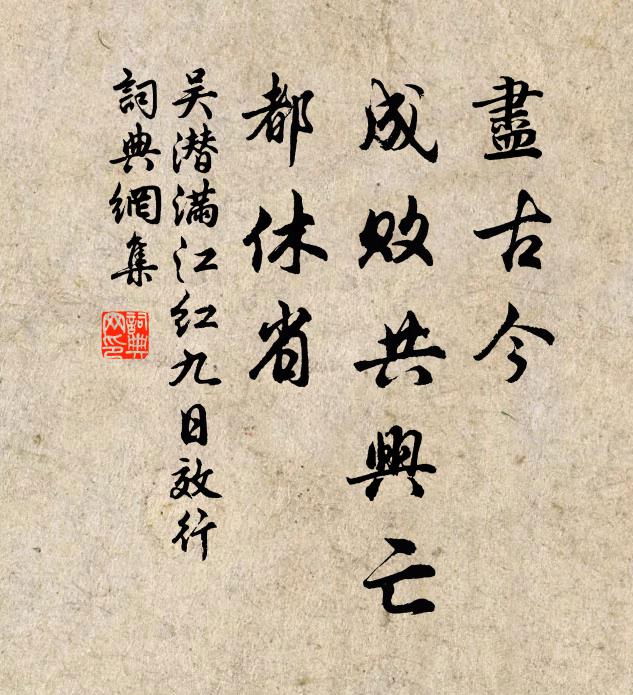 盡古今
成敗共興亡
都休省
吴潜满江红九日效行
詞典網集
詞典
网印